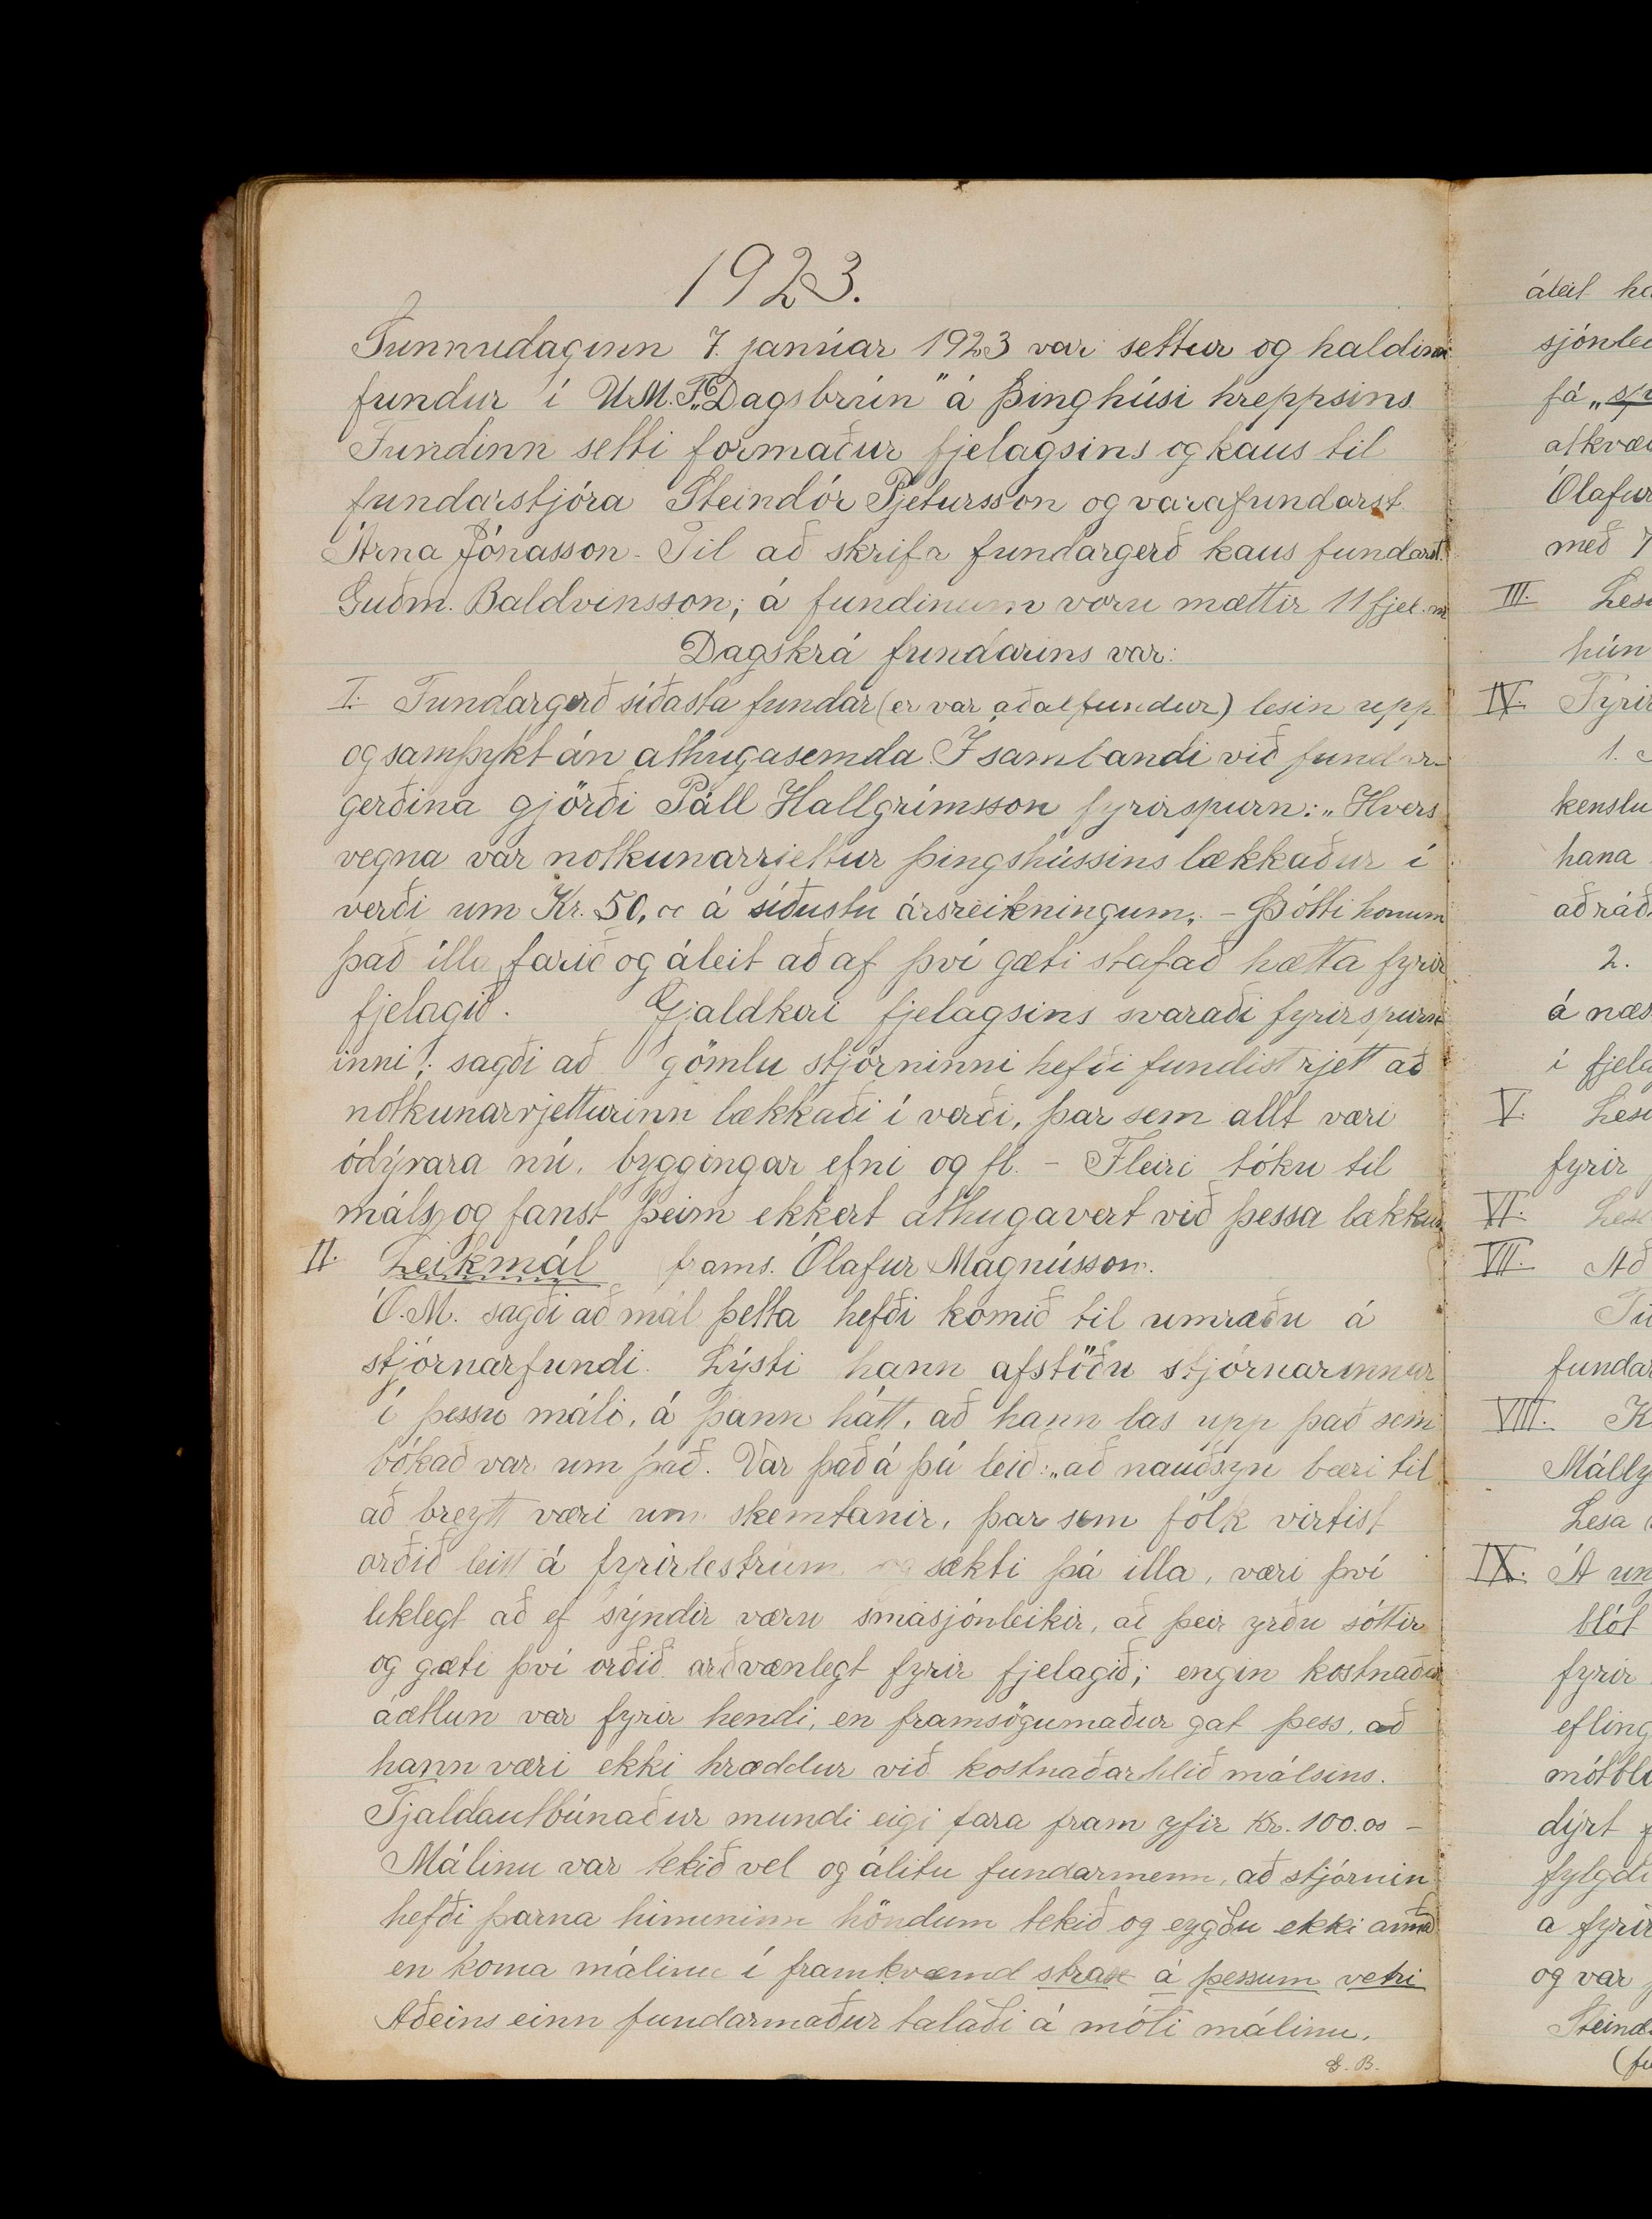 1923.
Sunnudaginn 7. janúar 1923 var settur og haldinn
fundur í U.M.F. „Dagsbrún" á Þinghúsi hreppsins
Fundinn setti formaður fjelagsins og kaus til
fundarstjóra Steindór Pjetursson og varafundarst.
Árna Jónasson - Til að skrifa fundargerð kaus fundarst.
Guðm. Baldvinsson; á fundinum voru mættir 11 fjel.m
Dagskrá fundarins var:
I. Fundargerð síðasta fundar (er var aðalfundur) lesin upp
og samþykt án athugasemda. Í sambandi við fundar-
gerðina gjörði Páll Hallgrímsson fyrirspurn: „Hvers
vegna var notkunarrjettur þingshússins lækkaður í
verði um Kr. 50,00 á síðustu ársreikningum". - Þótti honum
það illa farið og áleit að af því gæti stafað hætta fyrir
fjelagið. Gjaldkeri fjelagsins svaraði fyrirspurn-
inni; sagði að gömlu stjórninni hefði fundist rjett að
notkunarrjetturinn lækkaði í verði, þar sem allt væri
ódýrara nú, byggingar efni og fl. - Fleiri tóku til
máls, og fanst þeim ekkert athugavert við þessa lækkun
II. Leikmál frams. Ólafur Magnússon.
Ó.M. sagði að mál þetta hefði komið til umræðu á
stjórnarfundi. Lýsti hann afstöðu stjórnarinnar
í þessu máli, á þann hátt, að hann las upp það sem
bókað var um það. Var það á þá leið: „að nauðsyn bæri til
að breytt væri um skemtanir, þar sem fólk virtist
orðið leitt á fyrirlestrum og sækti þá illa, væri því
líklegt að ef sýndir væru smásjónleikir, að þeir yrðu sóttir
og gæti því orðið arðvænlegt fyrir fjelagið; engin kostnaðar
áætlun var fyrir hendi, en framsögumaður gat þess, að
hann væri ekki hræddur við kostnaðarhlið málsins.
Tjaldaútbúnaður mundi eigi fara fram yfir Kr. 100.00 -
Málinu var tekið vel og álitu fundarmenn, að stjórnin
hefði þarna himininn höndum tekið og eygðu ekki annað
en koma málinu í framkvæmd strax á þessum vetri
Aðeins einn fundarmaður talaði á móti málinu.
G. B.
áleit
sjónlei
fá „
atkvæð
Ólafur
með 7
III. Lesi
hún
IV. Fyrir
1.
kenslu
hana
að ráð
2.
á næs
í fjela
V. Lesi
fyrir
VI. Lesi
VII. Að
fundar
VIII. K
Málly
Lesa
IX. Á un
blót
fyrir
efling
mótbl
dýrt f
fylgdi
a fyrir
og var
Steind
(fu